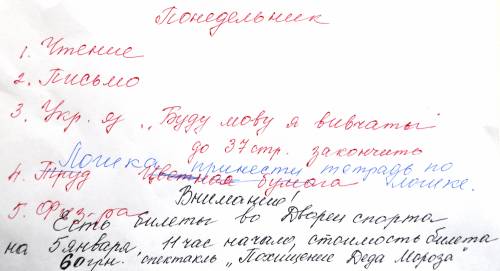 Понедельник
1. Чтение
2. Письмо
3. Укр. яз „Буду мову я вивчаты"
до 37 стр. закончить
Логика принести тетрадь по логике.
4. Труд Цветная бумага
Внимание!
5. Физ-ра
Есть билеты во Дворец спорта
на 5 января, 11 час начало, стоимость билета
60 грн. спектакль „Похищение Деда Мороза"